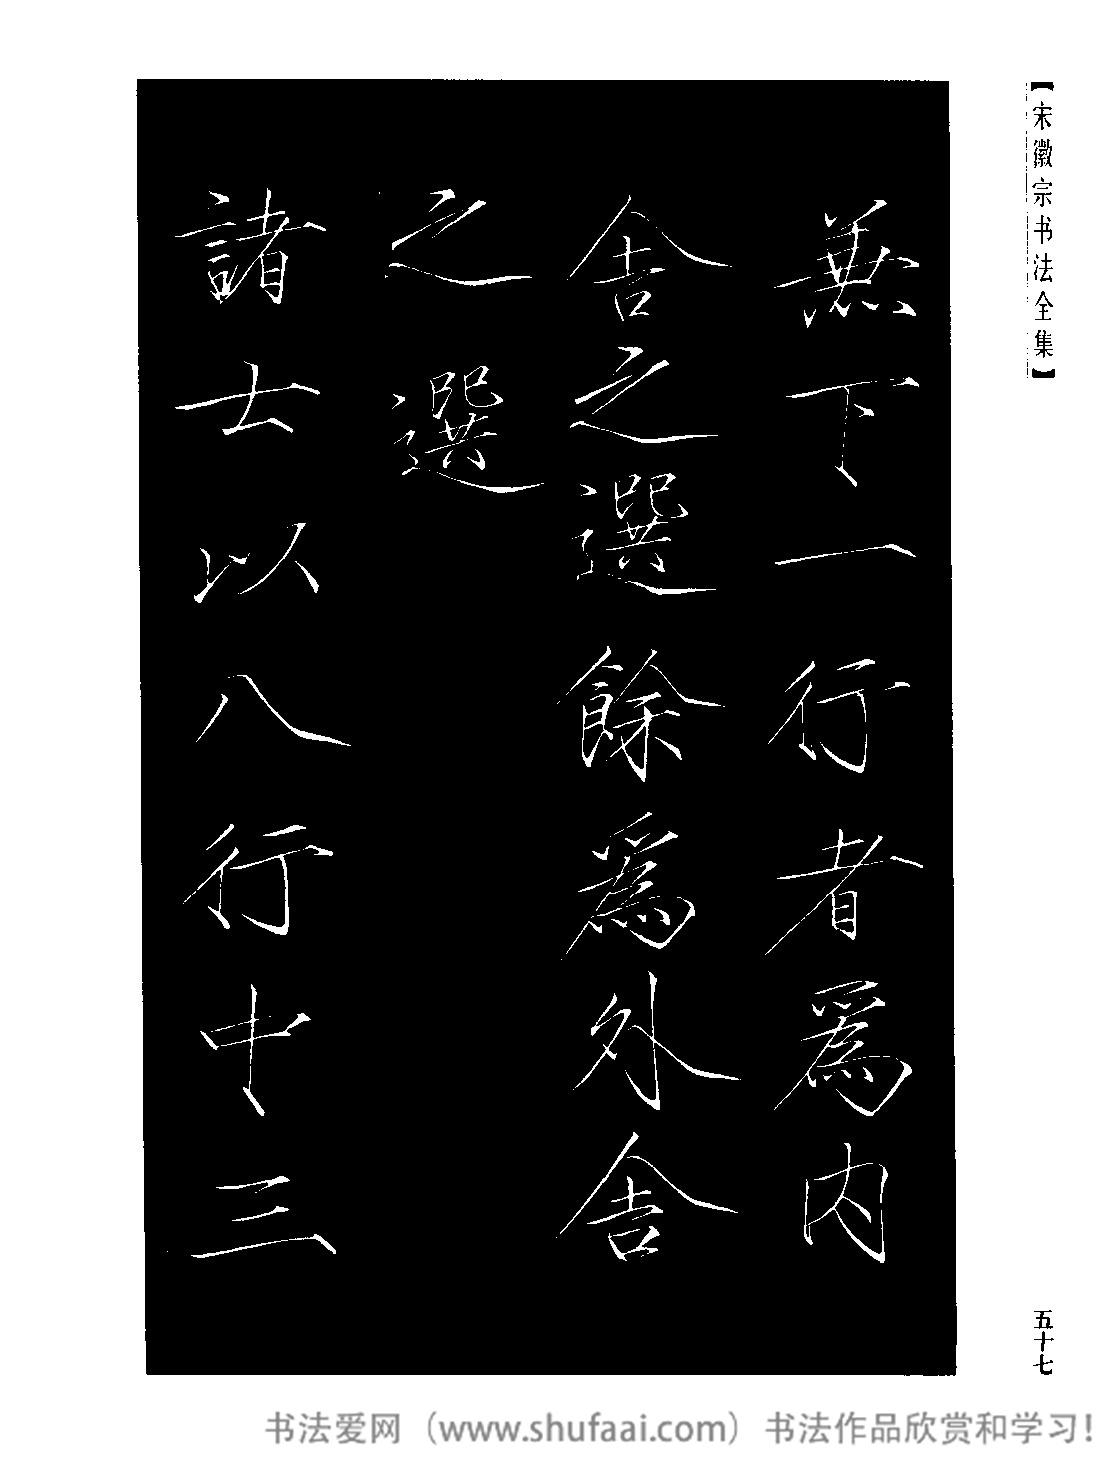 【宋徽宗书法全集】
兼下一行者爲内
舍之選餘爲外舍
之選
諸士以八行中三
五十七
书法爱网（www.shufaai.com）书法作品欣赏和学习！